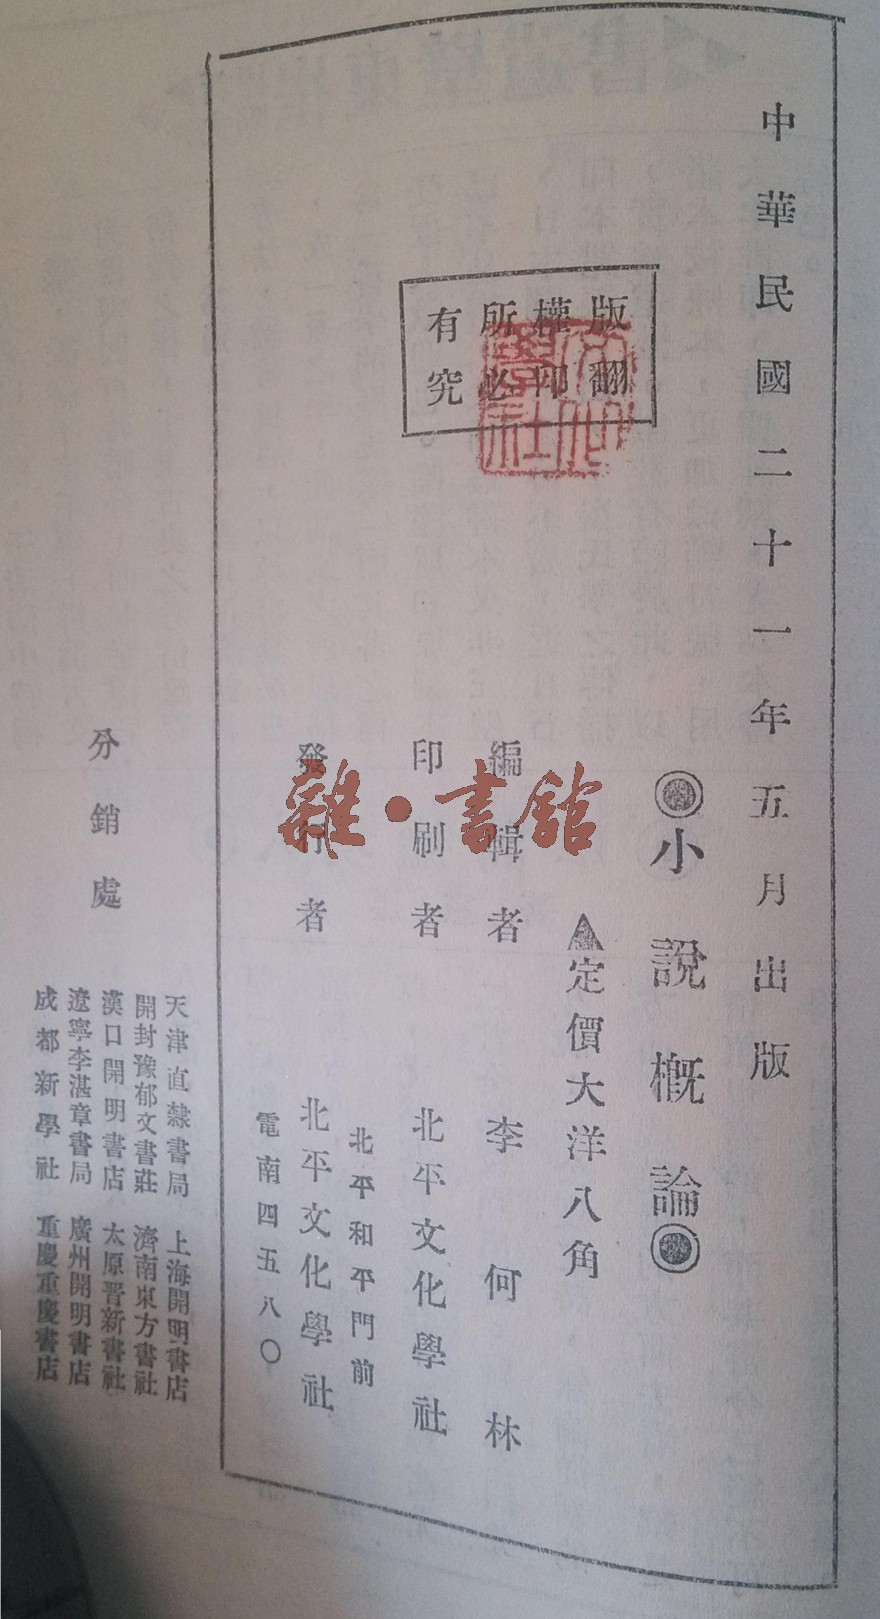 中華民國二十一年五月出版
◎小說概論◎
▲定價大洋八角
版權所有
翻印必究
編輯者 李何林
印刷者 北平文化學社
北平和平門前
發行者 北平文化學社
電南四五八〇
分銷處
天津直隸書局 上海開明書店
開封豫郁文書莊 濟南東方書社
漢口開明書店 太原晋新書社
遼寧李湛章書局 廣州開明書店
成都新學社 重慶重慶書店
雜·書館